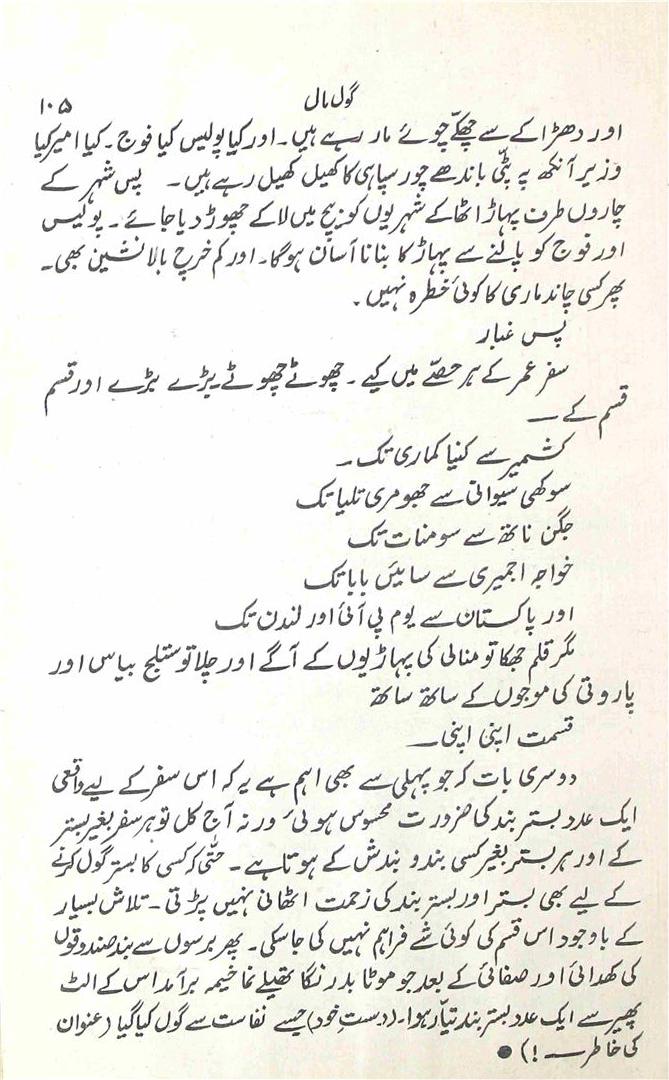 گول مال
۱۰۵
اور دھڑاکے سے چھکّے چوئے مار رہے ہیں۔ اور کیا پولیس کیا فوج۔ کیا امیر کیا
وزیر آنکھ پہ پٹّی باندھے چور سپاہی کا کھیل کھیل رہے ہیں۔ پس شہر کے
چاروں طرف پہاڑ اٹھا کے شہریوں کو بیچ میں لا کے چھوڑ دیا جائے۔ پولیس
اور فوج کو پالنے سے پہاڑ کا بنانا آسان ہوگا۔ اور کم خرچ بالا نشین بھی۔
پھر کسی چاند ماری کا کوئی خطرہ نہیں۔
پس غبار
سفر عمر کے ہر حصّے میں کیے۔ چھوٹے چھوٹے بڑے بڑے اور قسم
قسم کے —
کشمیر سے کنیا کماری تک۔
سوکھی سیوانی سے جھومری تلیا تک
جگن ناتھ سے سومنات تک
خواجہ اجمیری سے سائیں بابا تک
اور پاکستان سے یوم پی آئی اور لندن تک
مگر قلم جھکا تو منالی کی پہاڑیوں کے آگے اور چلا تو ستلج بیاس اور
پاروتی کی موجوں کے ساتھ ساتھ
قسمت اپنی اپنی —
دوسری بات کہ جو پہلی سے بھی اہم ہے یہ کہ اس سفر کے لیے واقعی
ایک عدد بستر بند کی ضرورت محسوس ہوئی ورنہ آج کل تو ہر سفر بغیر بستر
کے اور ہر بستر بغیر کسی بند و بندش کے ہوتا ہے۔ حتّٰی کہ کسی کا بستر گول کرنے
کے لیے بھی بستر اور بستر بند کی زحمت اٹھانی نہیں پڑتی۔ تلاش بسیار
کے باوجود اس قسم کی کوئی شے فراہم نہیں کی جاسکی۔ پھر برسوں سے بند صندوقوں
کی کھدائی اور صفائی کے بعد جو موٹا بدرنگا تھیلے نما خیمہ برآمد اس کے الٹ
پھیر سے ایک عدد بستر بند تیّار ہوا۔ (دستِ خود) جسے نفاست سے گول کیا گیا (عنوان
کی خاطر — !) ●